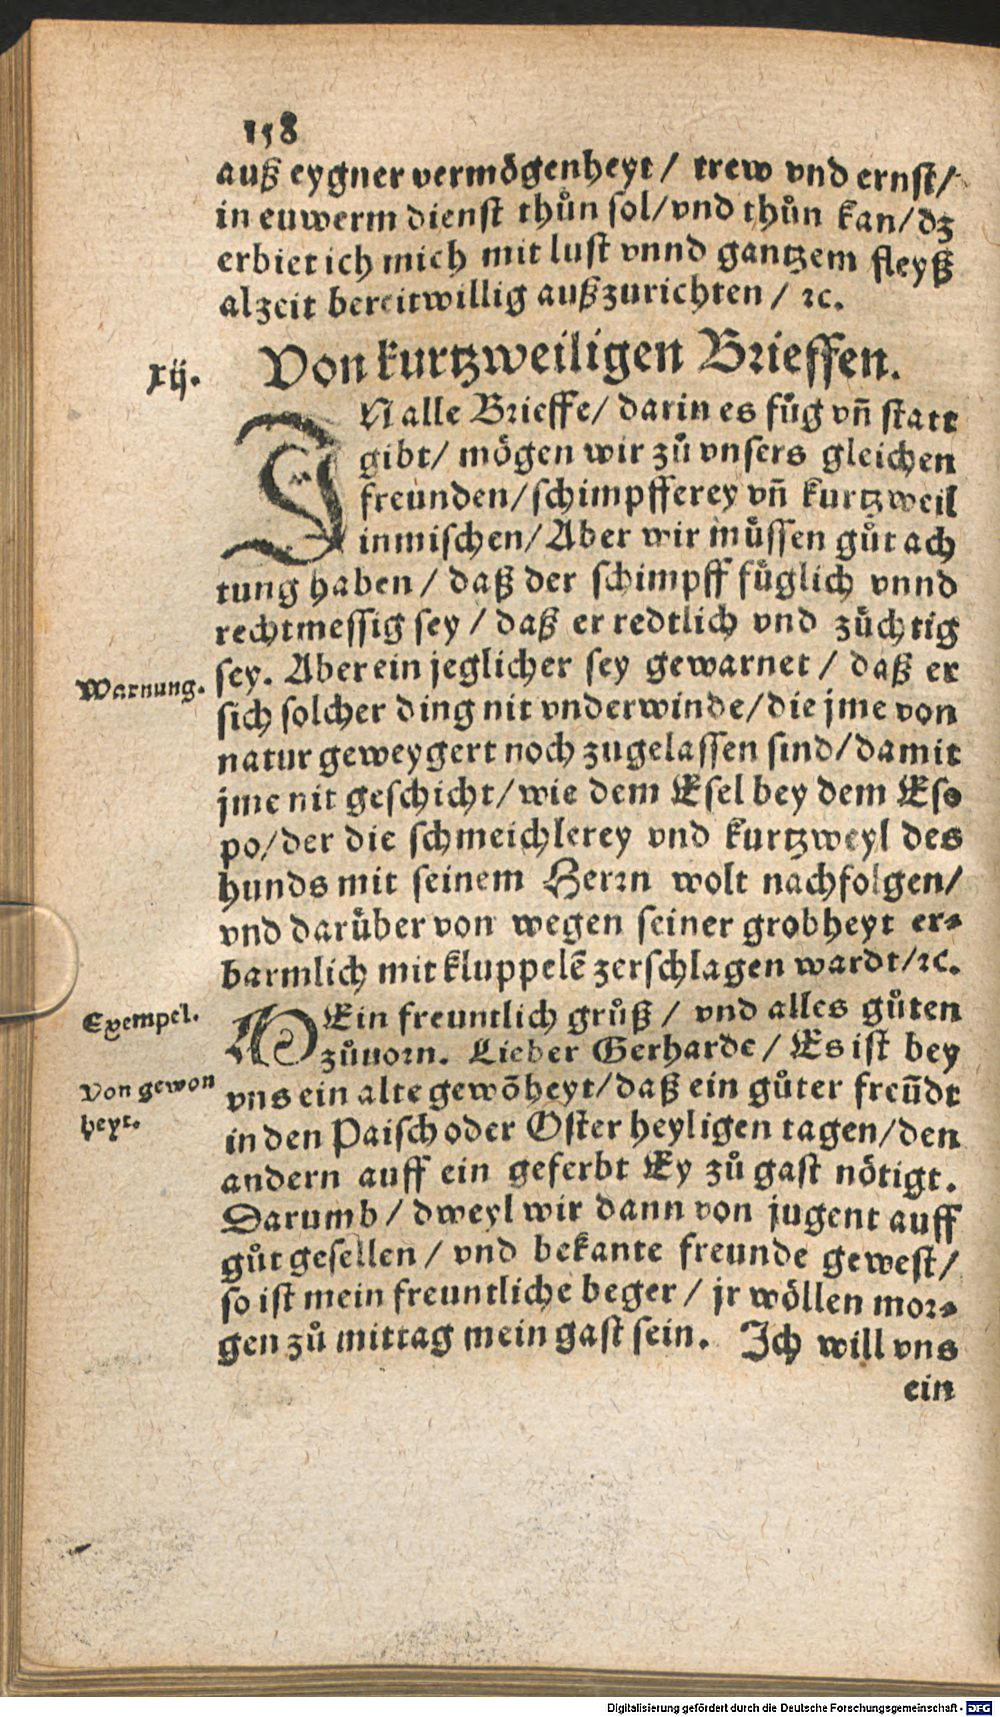 158
auß eygner vermögenheyt / trew vnd ernst/
in euwerm dienst thůn sol/vnd thůn kan/dz
erbiet ich mich mit lust vnnd gantzem fleyß
alzeit bereitwillig außzurichten / ꝛc.
xij. Von kurtzweiligen Brieffen.
IN alle Brieffe/ darin es fůg vñ statt
gibt/ mögen wir zů vnsers gleichen
freunden/schimpfferey vñ kurtzweil
inmischen/Aber wir můssen gůt ach
tung haben / daß der schimpff fůglich vnnd
rechtmessig sey / daß er redtlich vnd zůchtig
Warnung. sey. Aber ein jeglicher sey gewarnet / daß er
sich solcher ding nit vnderwinde/die jme von
natur geweygert noch zugelassen sind/damit
jme nit geschicht/wie dem Esel bey dem Eso
po/der die schmeichlerey vnd kurtzweyl des
hunds mit seinem Herrn wolt nachfolgen/
vnd darůber von wegen seiner grobheyt er-
barmlich mit kluppelē zerschlagen wardt/ꝛc.
Exempel. MEin freuntlich grůß / vnd alles gůten
zůuorn. Lieber Gerharde / Es ist bey
Von gewon vns ein alte gewõheyt/daß ein gůter freũdt
heyt. in den Paisch oder Oster heyligen tagen/den
andern auff ein geferbt Ey zů gast nötigt.
Darumb / dweyl wir dann von jugent auff
gůt gesellen / vnd bekante freunde gewest/
so ist mein freuntliche beger / jr wöllen mor-
gen zů mittag mein gast sein. Ich will vns
ein
Digitalisierung gefördert durch die Deutsche Forschungsgemeinschaft - DFG